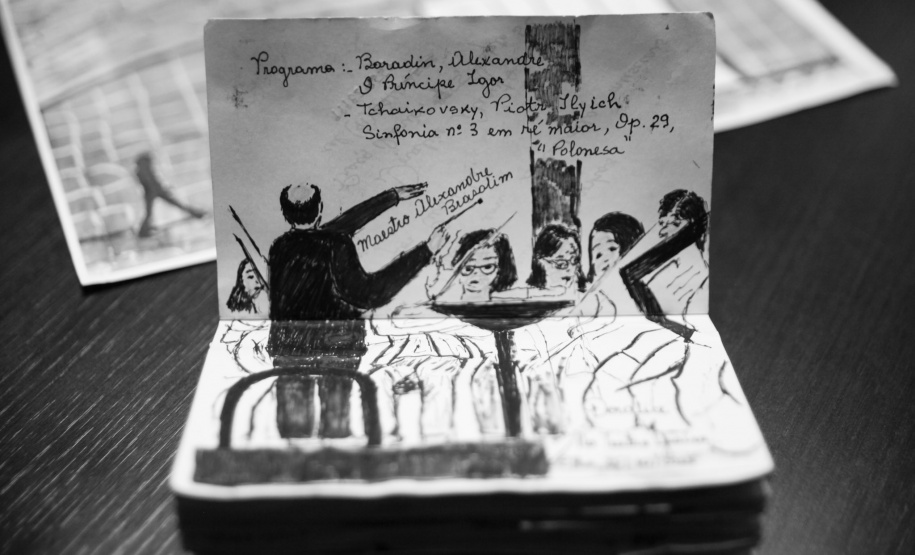 Programa:- Boradin, Alexandre
O Príncipe Igor
- Tchaikovsky, Piotr Ilyich.
Sinfonia nº 3 em ré maior, Op. 29,
"Polonesa"
Maestro Alexandre
Brasolim